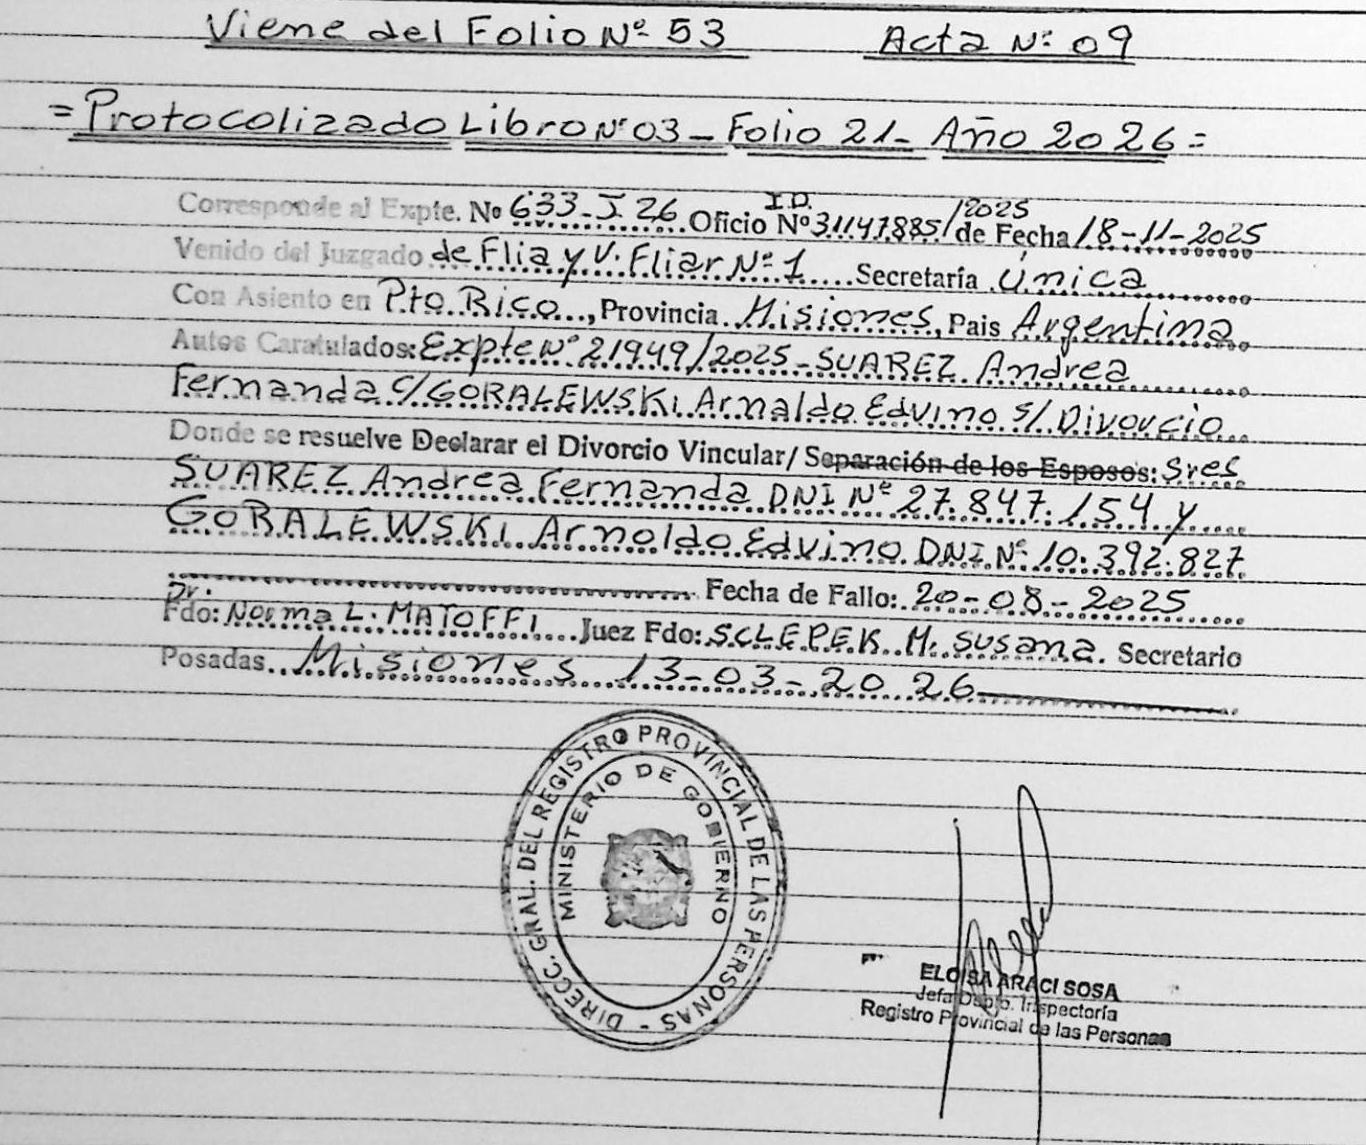 Viene del Folio Nº 53 Acta Nº 09
=Protocolizado Libro Nº 03 - Folio 21 - Año 2026=
Corresponde al Expte. Nº 633-I-26 Oficio I.D. Nº 31147885/2025 de Fecha 18-11-2025
Venido del Juzgado de Flia y V. Fliar Nº 1 Secretaría Única
Con Asiento en Pto. Rico, Provincia Misiones, Pais Argentina
Autos Caratulados: Expte Nº 21949/2025 - SUAREZ Andrea
Fernanda c/ GORALEWSKI Arnaldo Edvino s/ Divorcio
Donde se resuelve Declarar el Divorcio Vincular/ Separación de los Esposos: Sres
SUAREZ Andrea Fernanda DNI Nº 27.847.154 y
GORALEWSKI Arnoldo Edvino DNI Nº 10.392.827
Fecha de Fallo: 20-08-2025
Fdo: Dr. Norma L. MATOFFI Juez Fdo: SCLEPEK M. Susana. Secretario
Posadas Misiones 13-03-2026
DIRECC. GRAL. DEL REGISTRO PROVINCIAL DE LAS PERSONAS -
MINISTERIO DE GOBIERNO
ELOISA ARACI SOSA
Jefa Dpto. Inspectoría
Registro Provincial de las Personas